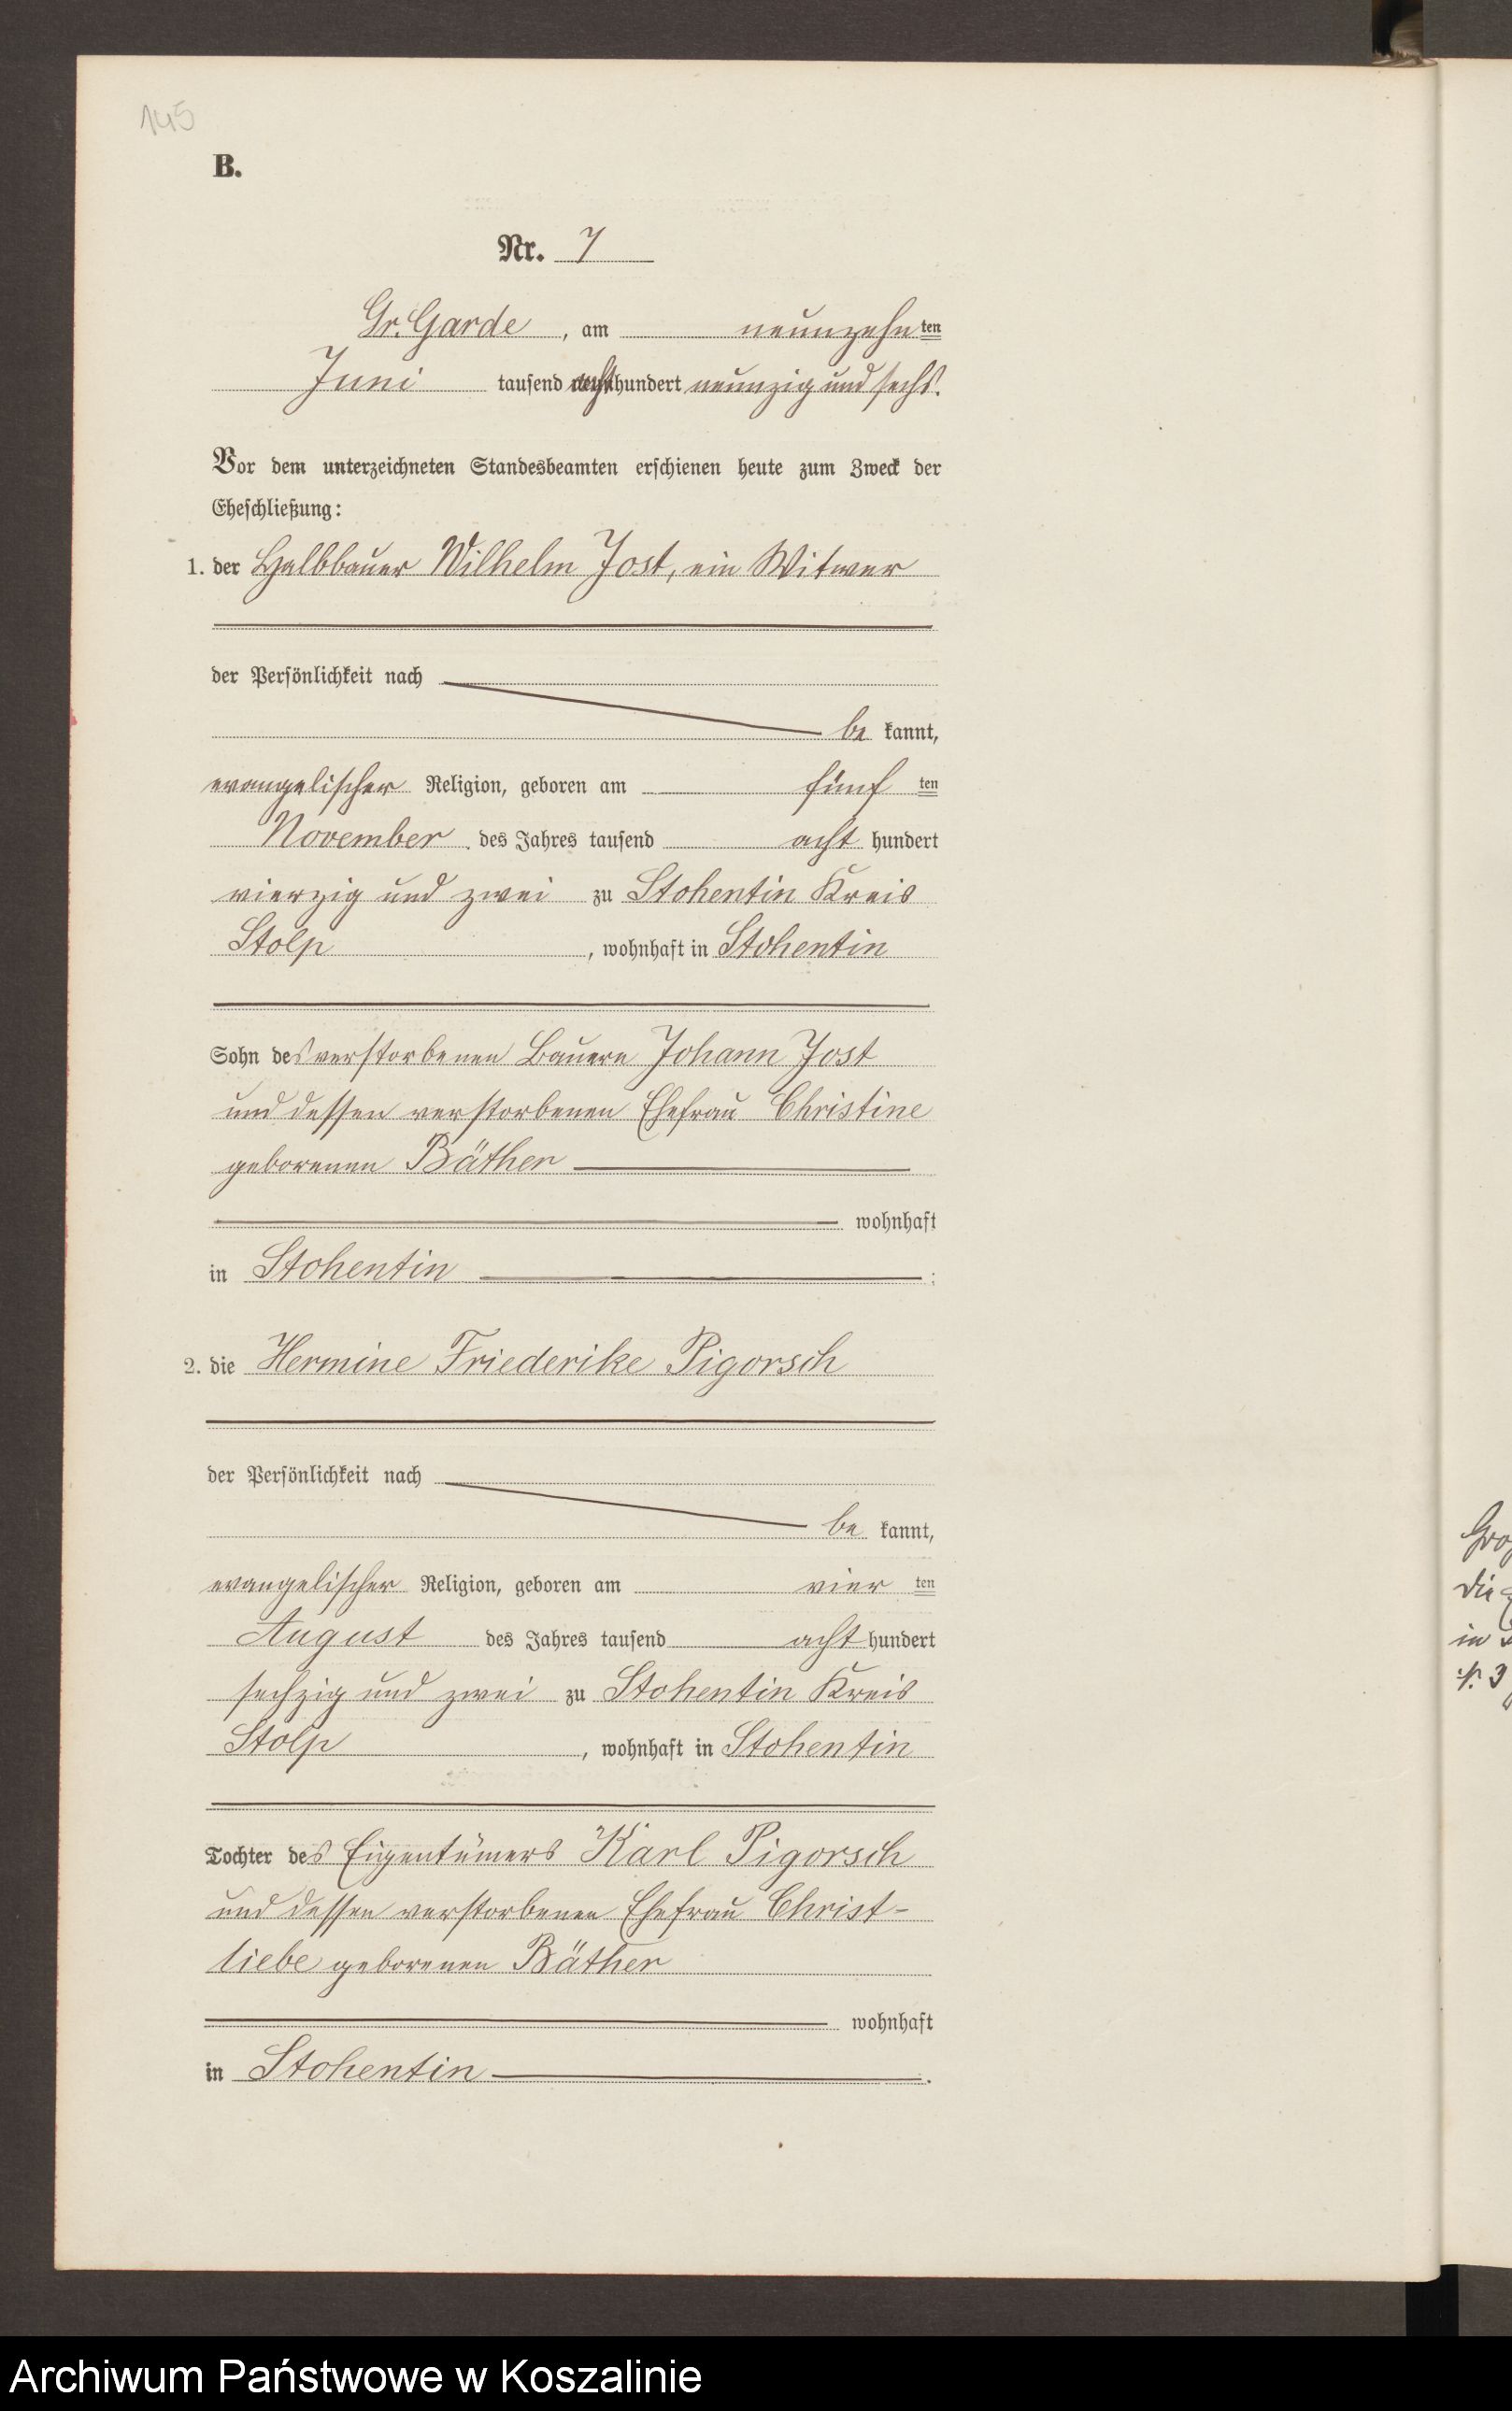 145
B.
Nr. 7
Gr. Garde, am neunzehnten
Juni tausend achthundert neunzig und sechs.
Vor dem unterzeichneten Standesbeamten erschienen heute zum Zweck der
Eheschließung:
1. der Halbbauer Wilhelm Jost, ein Witwer
der Persönlichkeit nach
be kannt,
evangelischer Religion, geboren am fünf ten
November des Jahres tausend acht hundert
vierzig und zwei zu Stohentin Kreis
Stolp, wohnhaft in Stohentin
Sohn des verstorbenen Bauern Johann Jost
und dessen verstorbenen Ehefrau Christine
geborenen Bäther
wohnhaft
in Stohentin ;
2. die Hermine Friederike Pigorsch
der Persönlichkeit nach
be kannt,
evangelischer Religion, geboren am vier ten
August des Jahres tausend acht hundert
sechzig und zwei zu Stohentin Kreis
Stolp, wohnhaft in Stohentin
Tochter des Eigentümers Karl Pigorsch
und dessen verstorbenen Ehefrau Christ-
liebe geborenen Bäther
wohnhaft
in Stohentin.
die
in
3
Archiwum Państwowe w Koszalinie